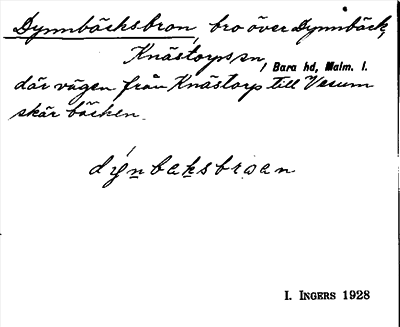 Dynnbäcksbron, bro över Dynnbäck,
Knästorps sn, Bara hd, Malm. l.
där vägen från Knästorp till Vesum
skär bäcken.
dýnbaksbroan
I. INGERS 1928